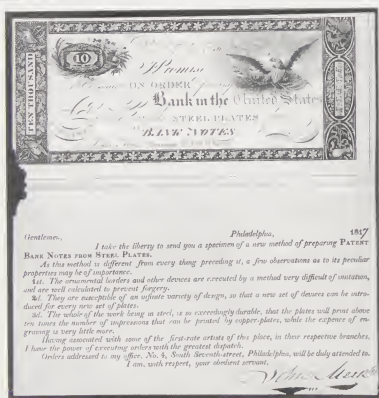 TEN THOUSAND
10
Promise
ON ORDER
Bank in the United States
STEEL PLATES
BANK NOTES
Philadelphia, 1817
Gentlemen,
I take the liberty to send you a specimen of a new method of preparing PATENT
BANK NOTES FROM STEEL PLATES.
As this method is different from every thing preceding it, a few observations as to its peculiar
properties may be of importance.
1st. The ornamental borders and other devices are executed by a method very difficult of imitation,
and are well calculated to prevent forgery.
2d. They are susceptible of an infinite variety of design, so that a new set of devices can be intro-
duced for every new set of plates.
3d. The whole of the work being in steel, is so exceedingly durable, that the plates will print above
ten times the number of impressions that can be printed by copper-plates, while the expence of en-
graving is very little more.
Having associated with some of the first-rate artists of this place, in their respective branches,
I have the power of executing orders with the greatest dispatch.
Orders addressed to my office, No. 4, South Seventh-street, Philadelphia, will be duly attended to.
I am, with respect, your obedient servant,